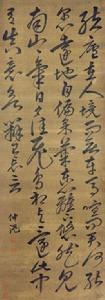 結廬在人境而無車馬喧問君何能
爾心遠地自偏采菊東籬下悠然見
南山山氣日夕佳飛鳥相與還此中
有真意欲辨已忘言